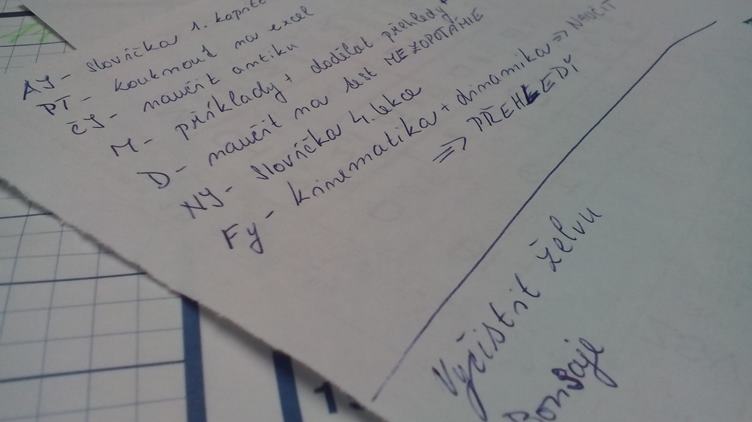 AJ - slovíčka 1. kapitola
PT - kouknout na excel
ČJ - naučit antiku
M - příklady + dodělat překlady
D - naučit na test MEZOPOTÁMIE
NJ - slovíčka 4. lekce
Fy - kinematika + dinamika => NAUČIT
=> PŘEHLEDÍ
Vyčistit želvu
Bonsaje